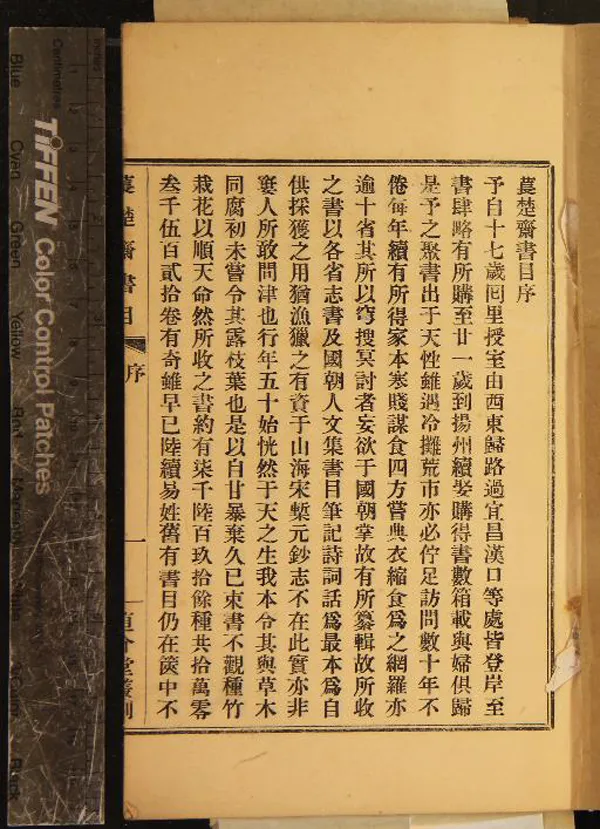 萇楚齋書目序
予自十七歲囘里授室由西東歸路過宜昌漢口等處皆登岸至
書肆略有所購至廿一歲到揚州續娶購得書數箱載與婦俱歸
是予之聚書出于天性雖遇冷攤荒市亦必佇足訪問數十年不
倦每年續有所得家本寒賤謀食四方嘗典衣縮食爲之網羅亦
逾十省其所以穹搜冥討者妄欲于國朝掌故有所纂輯故所收
之書以各省志書及國朝人文集書目筆記詩詞話爲最本爲自
供採獲之用猶漁獵之有資于山海宋槧元鈔志不在此實亦非
窶人所敢問津也行年五十始恍然于天之生我本令其與草木
同腐初未嘗令其露枝葉也是以自甘暴棄久已束書不觀種竹
栽花以順天命然所收之書約有柒千陸百玖拾餘種共拾萬零
叁千伍百貳拾卷有奇雖早已陸續易姓舊有書目仍在篋中不
萇楚齋書目
序
一
直介堂叢刻
TIFFEN Color Control Patches
Centimetres
Blue
Cyan
Green
Yellow
Red
Black